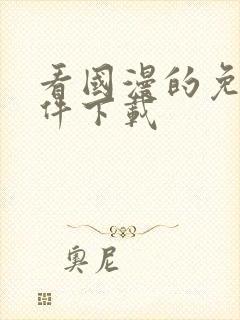 看國漫的免
件下載
奧尼